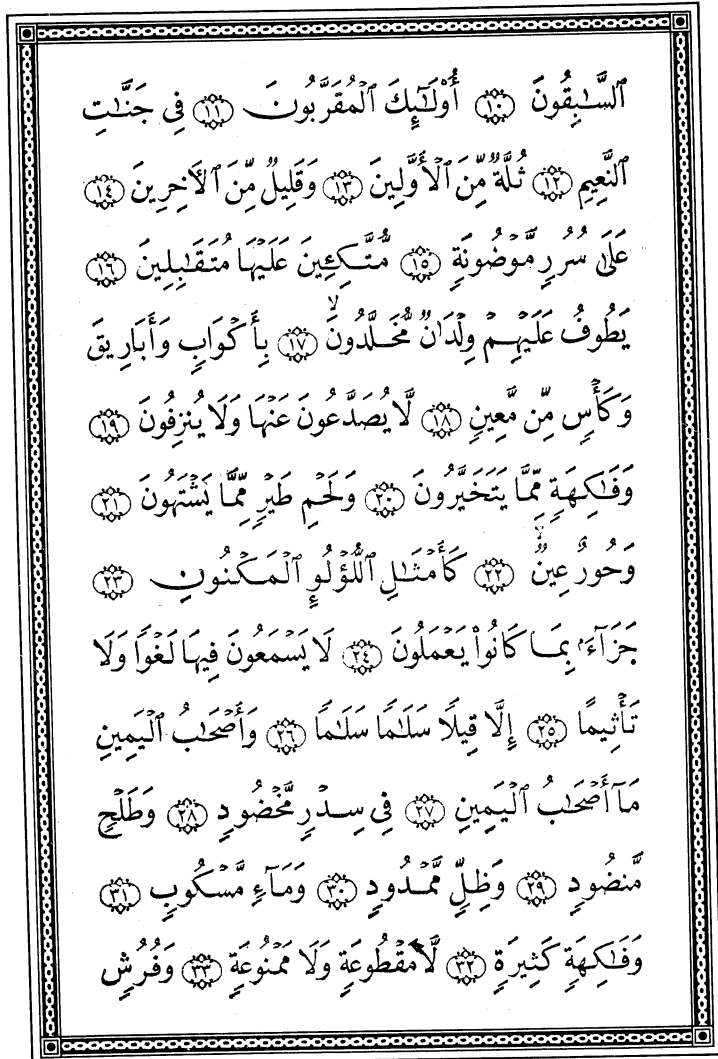 ٱلسَّٰبِقُونَ ١٠ أُوْلَٰٓئِكَ ٱلْمُقَرَّبُونَ ١١ فِى جَنَّٰتِ
ٱلنَّعِيمِ ١٢ ثُلَّةٌ مِّنَ ٱلْأَوَّلِينَ ١٣ وَقَلِيلٌ مِّنَ ٱلْأَخِرِينَ ١٤
عَلَىٰ سُرُرٍ مَّوْضُونَةٍ ١٥ مُّتَّكِـِٔينَ عَلَيْهَا مُتَقَٰبِلِينَ ١٦
يَطُوفُ عَلَيْهِمْ وِلْدَٰنٌ مُّخَلَّدُونَ ١٧ بِأَكْوَابٍ وَأَبَارِيقَ
وَكَأْسٍ مِّن مَّعِينٍ ١٨ لَّا يُصَدَّعُونَ عَنْهَا وَلَا يُنزِفُونَ ١٩
وَفَٰكِهَةٍ مِّمَّا يَتَخَيَّرُونَ ٢٠ وَلَحْمِ طَيْرٍ مِّمَّا يَشْتَهُونَ ٢١
وَحُورٌ عِينٌ ٢٢ كَأَمْثَٰلِ ٱللُّؤْلُؤِ ٱلْمَكْنُونِ ٢٣
جَزَآءَۢ بِمَا كَانُوا۟ يَعْمَلُونَ ٢٤ لَا يَسْمَعُونَ فِيهَا لَغْوًا وَلَا
تَأْثِيمًا ٢٥ إِلَّا قِيلًا سَلَٰمًا سَلَٰمًا ٢٦ وَأَصْحَٰبُ ٱلْيَمِينِ
مَآ أَصْحَٰبُ ٱلْيَمِينِ ٢٧ فِى سِدْرٍ مَّخْضُودٍ ٢٨ وَطَلْحٍ
مَّنضُودٍ ٢٩ وَظِلٍّ مَّمْدُودٍ ٣٠ وَمَآءٍ مَّسْكُوبٍ ٣١
وَفَٰكِهَةٍ كَثِيرَةٍ ٣٢ لَّا مَقْطُوعَةٍ وَلَا مَمْنُوعَةٍ ٣٣ وَفُرُشٍ